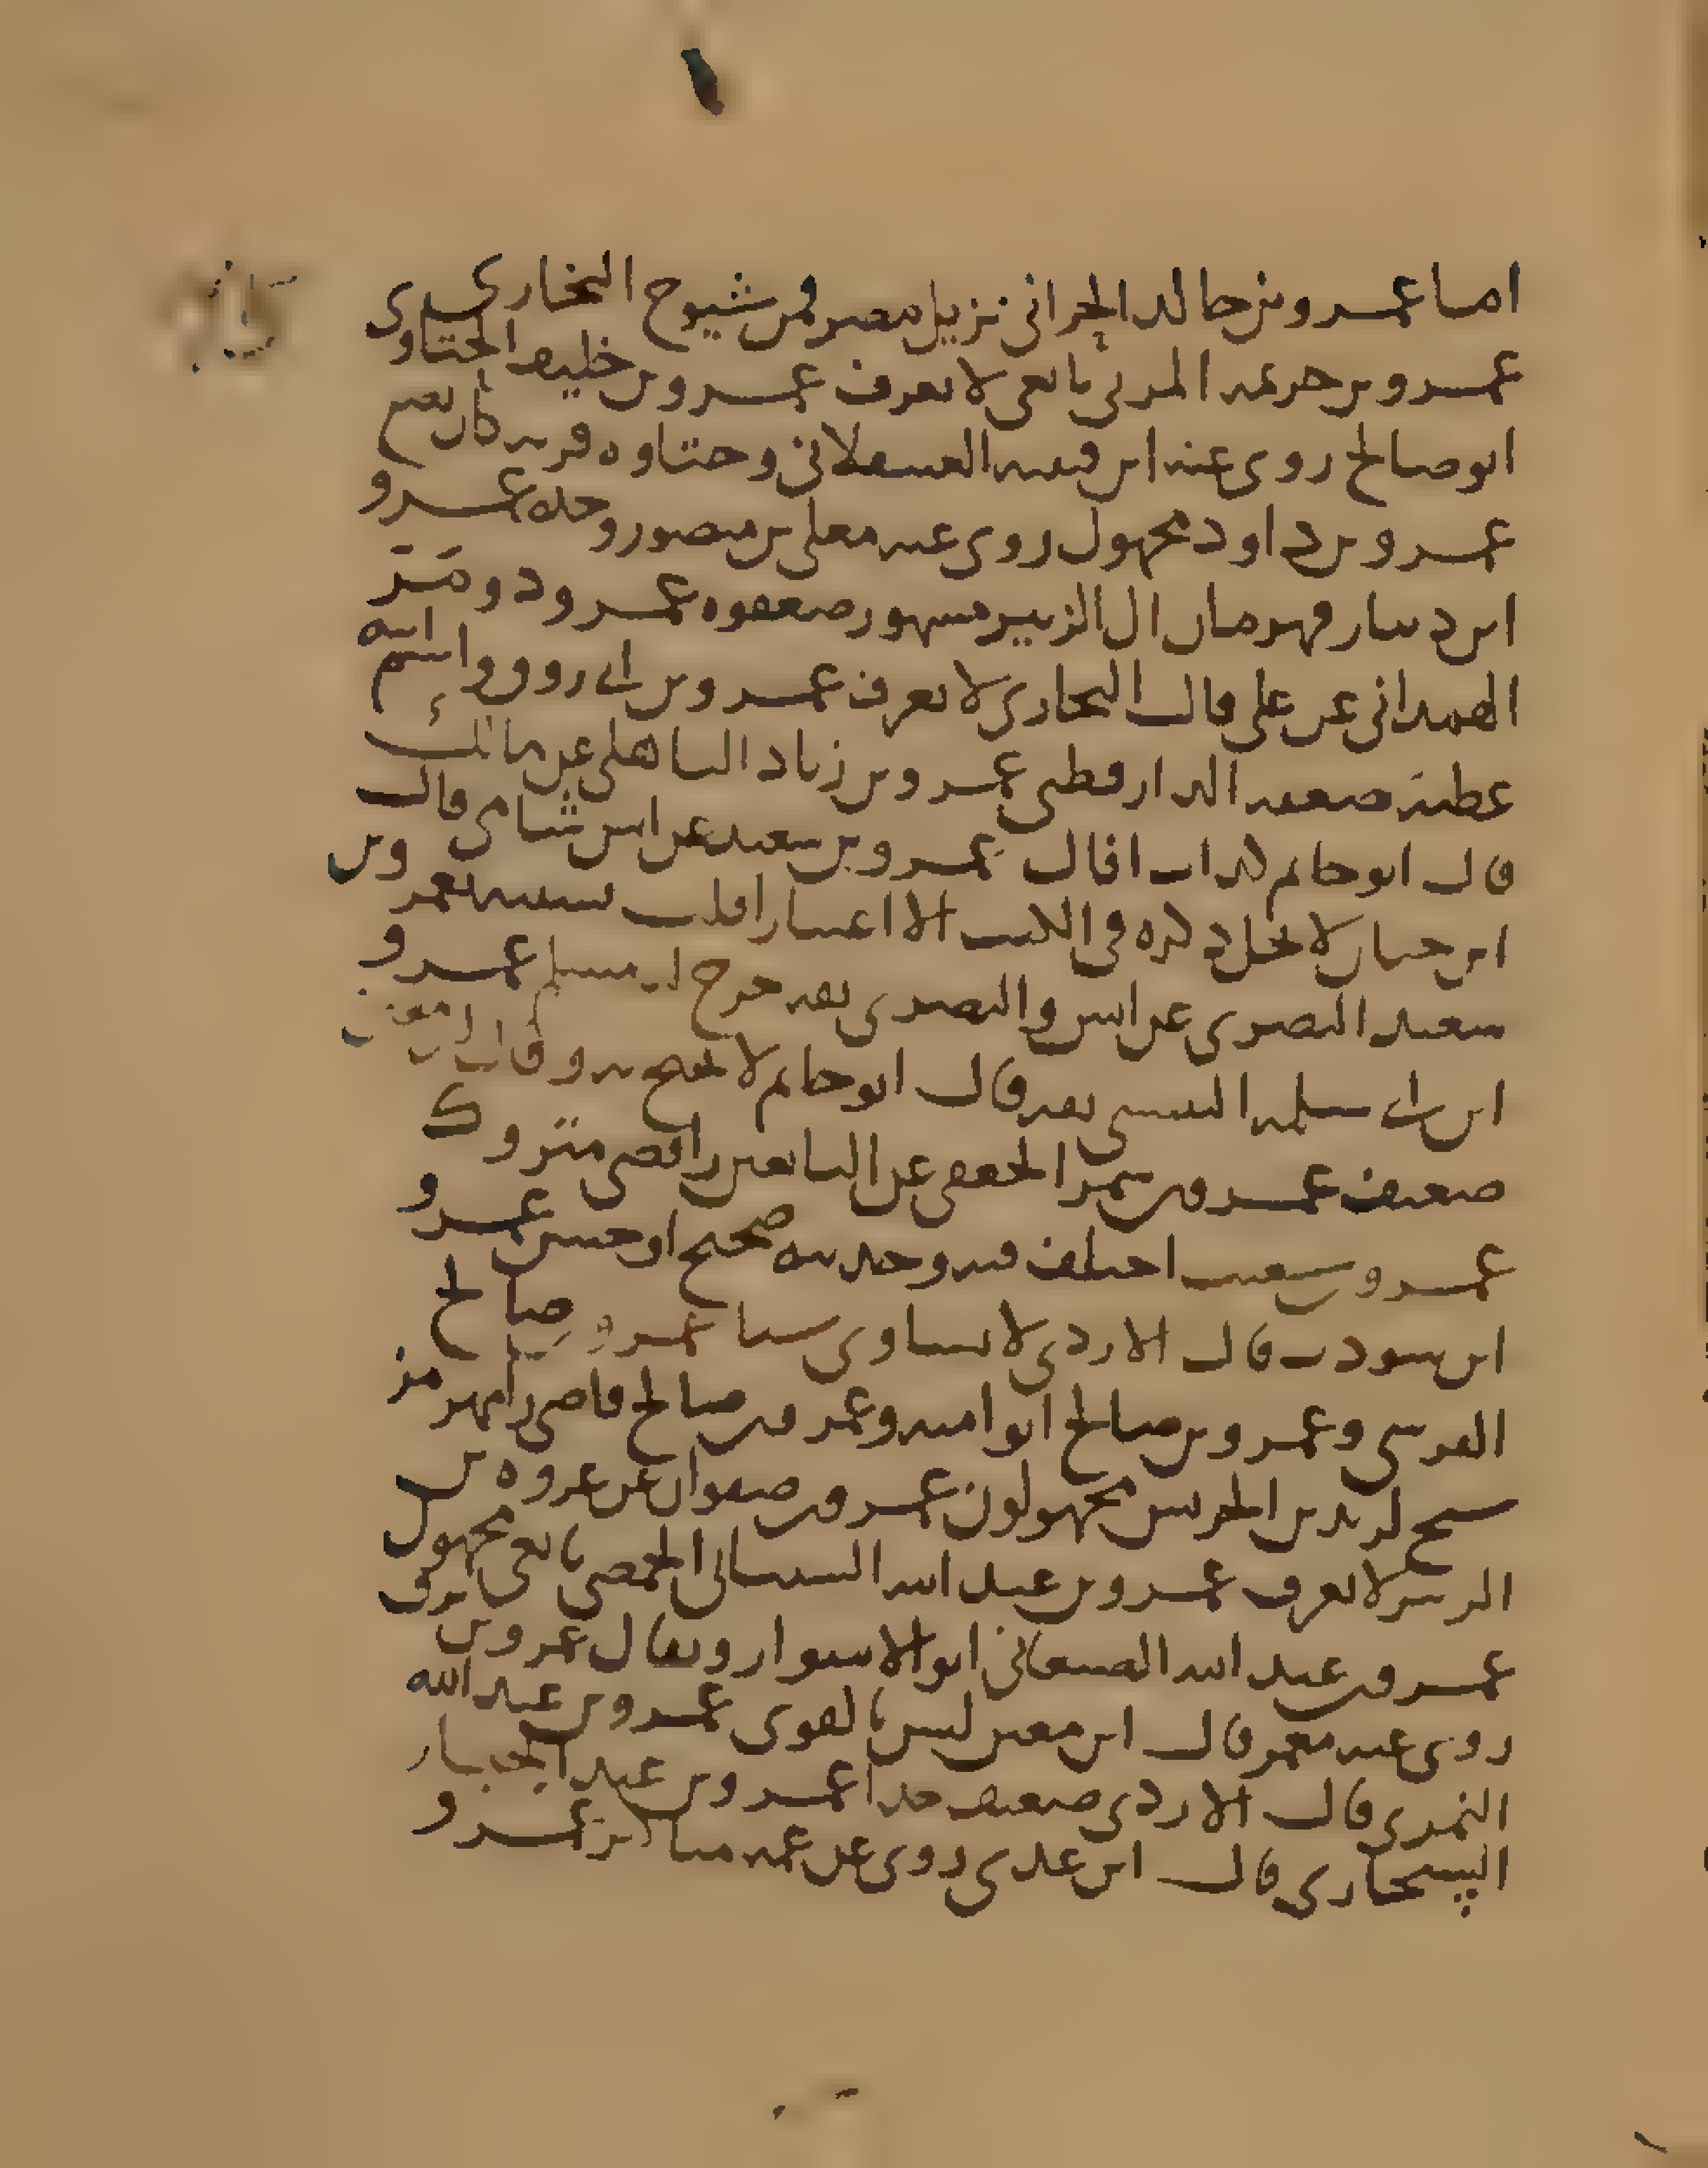 اما عمرو بن خالد الحراني نزيل مصر فمن شيوخ البخاري
عمرو بن خزيمه المزني تابعي لا يعرف عمرو بن خليف الحتاوي
ابو صالح روى عنه ابن قتيبه العسقلاني وحتاوه قريه كان يضع
عمرو بن داود مجهول روى عنه معلى بن منصور وحده عمرو
ابن دينار قهرمان ال الزبير مشهور ضعفوه عمرو ذو مر
الهمداني عن علي قال البخاري لا يعرف عمرو بن ابي روق واسم ابيه
عطيه ضعفه الدارقطني عمرو بن زياد الباهلي عن مالك
قال ابو حاتم كذاب افاك عمرو بن سعيد عن انس شامي قال
ابن حبان لا يحل ذكره في الكتب الا اعتبارا قلت يشتبه بعمرو بن
سعيد البصري عن انس والبصري ثقه خرج له مسلم عمرو
ابن ابي سلمه التنيسي ثقه قال ابو حاتم لا يحتج به وقال ابن معين
ضعيف عمرو بن شمر الجعفي عن التابعين رافضي متروك
عمرو بن شعيب اختلف فيه وحديثه صحيح او حسن عمرو
ابن شوذب قال الازدي لا يساوي شيا عمرو بن صالح
القرشي وعمرو بن صالح ابو اميه وعمرو بن صالح قاضي رامهرمز
شيخ لزيد بن الحريش مجهولون عمرو بن صفوان عن عروه بن
الزبير لا يعرف عمرو بن عبد الله السيباني الحمصي تابعي مجهول
عمرو بن عبد الله الصنعاني ابو الاسوار ويقال عمرو بن برق
روى عنه معمر قال ابن معين ليس بالقوي عمرو بن عبد الله
النمري قال الازدي ضعيف جدا عمرو بن عبد الجبار
السنجاري قال ابن عدي روى عن عمه مناكير عمرو